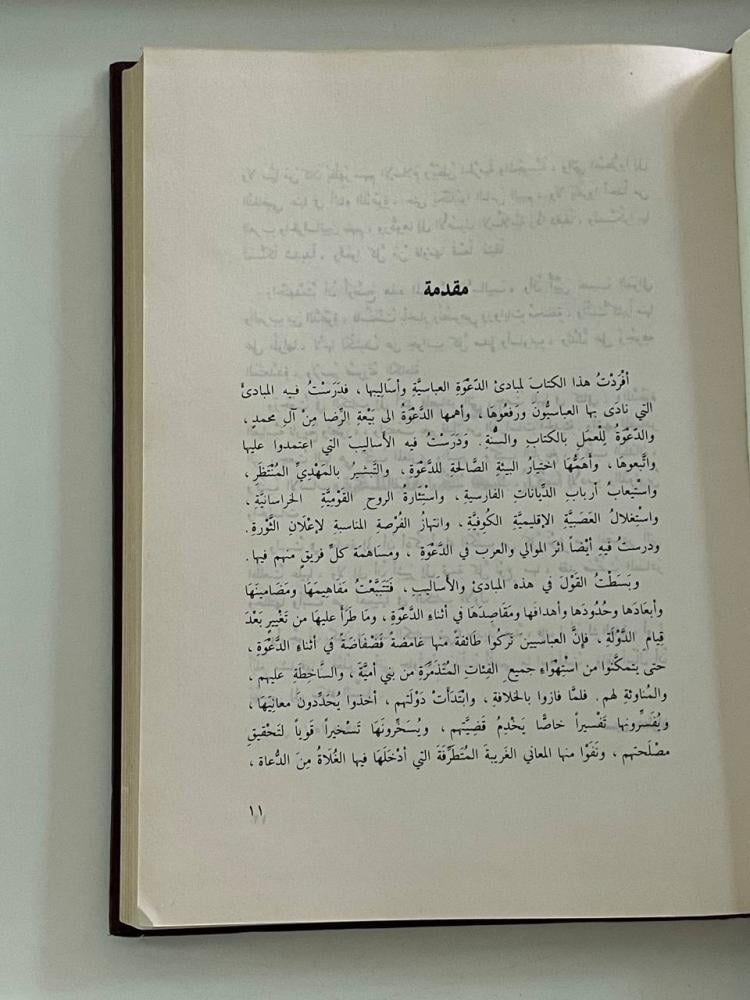 مقدمة
أفْرَدْتُ هذا الكتابَ لمبادئ الدّعْوَةِ العباسيَّةِ وأساليبها ، فدَرَسْتُ فيـه المبادئَ
التي نَادَى بها العباسيُّونَ ورَفعُوهَا ، وأهمها الدَّعْوَةُ الى بَيْعَةِ الرِّضا مِنْ آل محمدٍ ،
والدَّعْوَةُ لِلْعمَلِ بالكتاب والسُّنَّةِ . وَدَرَسْتُ فيه الأساليبَ التي اعتمدوا عليها
واتَّبعوهَا ، وأَهَمُّهَا اختيَارُ البيئةِ الصَّالحةِ للدَّعْوَةِ ، والتَّبْشيرُ بالمَهْدِيِّ المُنْتَظَرِ ،
واسْتيعابُ أربابِ الدِّيَاناتِ الفارسيةِ ، واسْتِثَارةُ الروحِ القَوْمِيَّةِ الخراسانيَّةِ ،
واسْتغلالُ العَصَبِيَّةِ الإقليميَّةِ الكُوفِيَّةِ ، وانتهازُ الفُرْصةِ المناسبةِ لإعْلَانِ الثَّوْرةِ .
ودرستُ فيهِ أيْضاً اثرَ الموالي والعرب في الدَّعْوَةِ ، ومساهمَة كلِّ فريقٍ منهم فيها .
وبَسَطْتُ القَوْلَ في هذه المبادئِ والأساليبِ ، فَتَتَبَّعْتُ مَفَاهيمَهَا ومَضَامينَهَا
وأبعَادَها وحُدُودَها وأهدافَها ومَقاصِدَهَا في أثناءِ الدَّعْوَةِ ، ومَا طَرَأَ عليهَا من تَغْييرٍ بَعْدَ
قِيامِ الدَّوْلَةِ ، فإنَّ العباسيين تَرَكُوا طائفةً منهَا غَامضةً فَضْفَاضَةً في أثناءِ الدَّعْوَةِ ،
حتى يتمكَّنوا من استْهوَاءِ جميعِ الفِئاتِ المُتَذَمِّرَةِ من بني أميَّةَ ، والسَّاخِطَةِ عليهم ،
والمُناوئةِ لهم . فلمَّا فازوا بالخلافةِ ، وابْتَدَأَتْ دَوْلَتهم ، أخذوا يُحَدِّدونَ معانِيَهَا ،
ويُفَسِّرونها تَفْسيراً خاصّاً يَخْدُمُ قَضِيَّتَهم ، ويُسَخِّرونَهَا تَسْخيراً قَوياً لتَحْقيقِ
مصْلَحتهم ، ونَفَوْا منها المعاني الغَريبةَ المُتَطَرِّفَةَ التي أدْخَلَهَا فيها الغُلَاةُ مِنَ الدُّعاة ،
١١